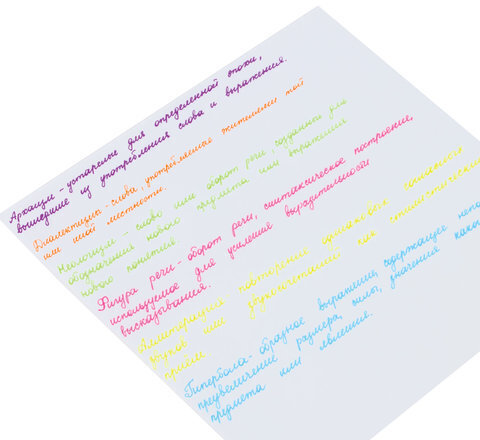 Архаизм - устаревшие для определенной эпохи,
вышедшие из употребления слова и выражения.
Диалектизмы - слова, употребляемые жителями той
или иной местности.
Неологизм - слово или оборот речи созданный для
обозначения нового предмета или выражения
нового понятия.
Фигура речи - оборот речи, синтаксическое построение,
используемое для усиления выразительности
высказывания.
Аллитерация повторение одинаковых согласных
звуков или звукосочетаний как стилистический
приём.
Гипербола - образное выражение, содержащее
преувеличение размера, силы, значения
предмета или явления.